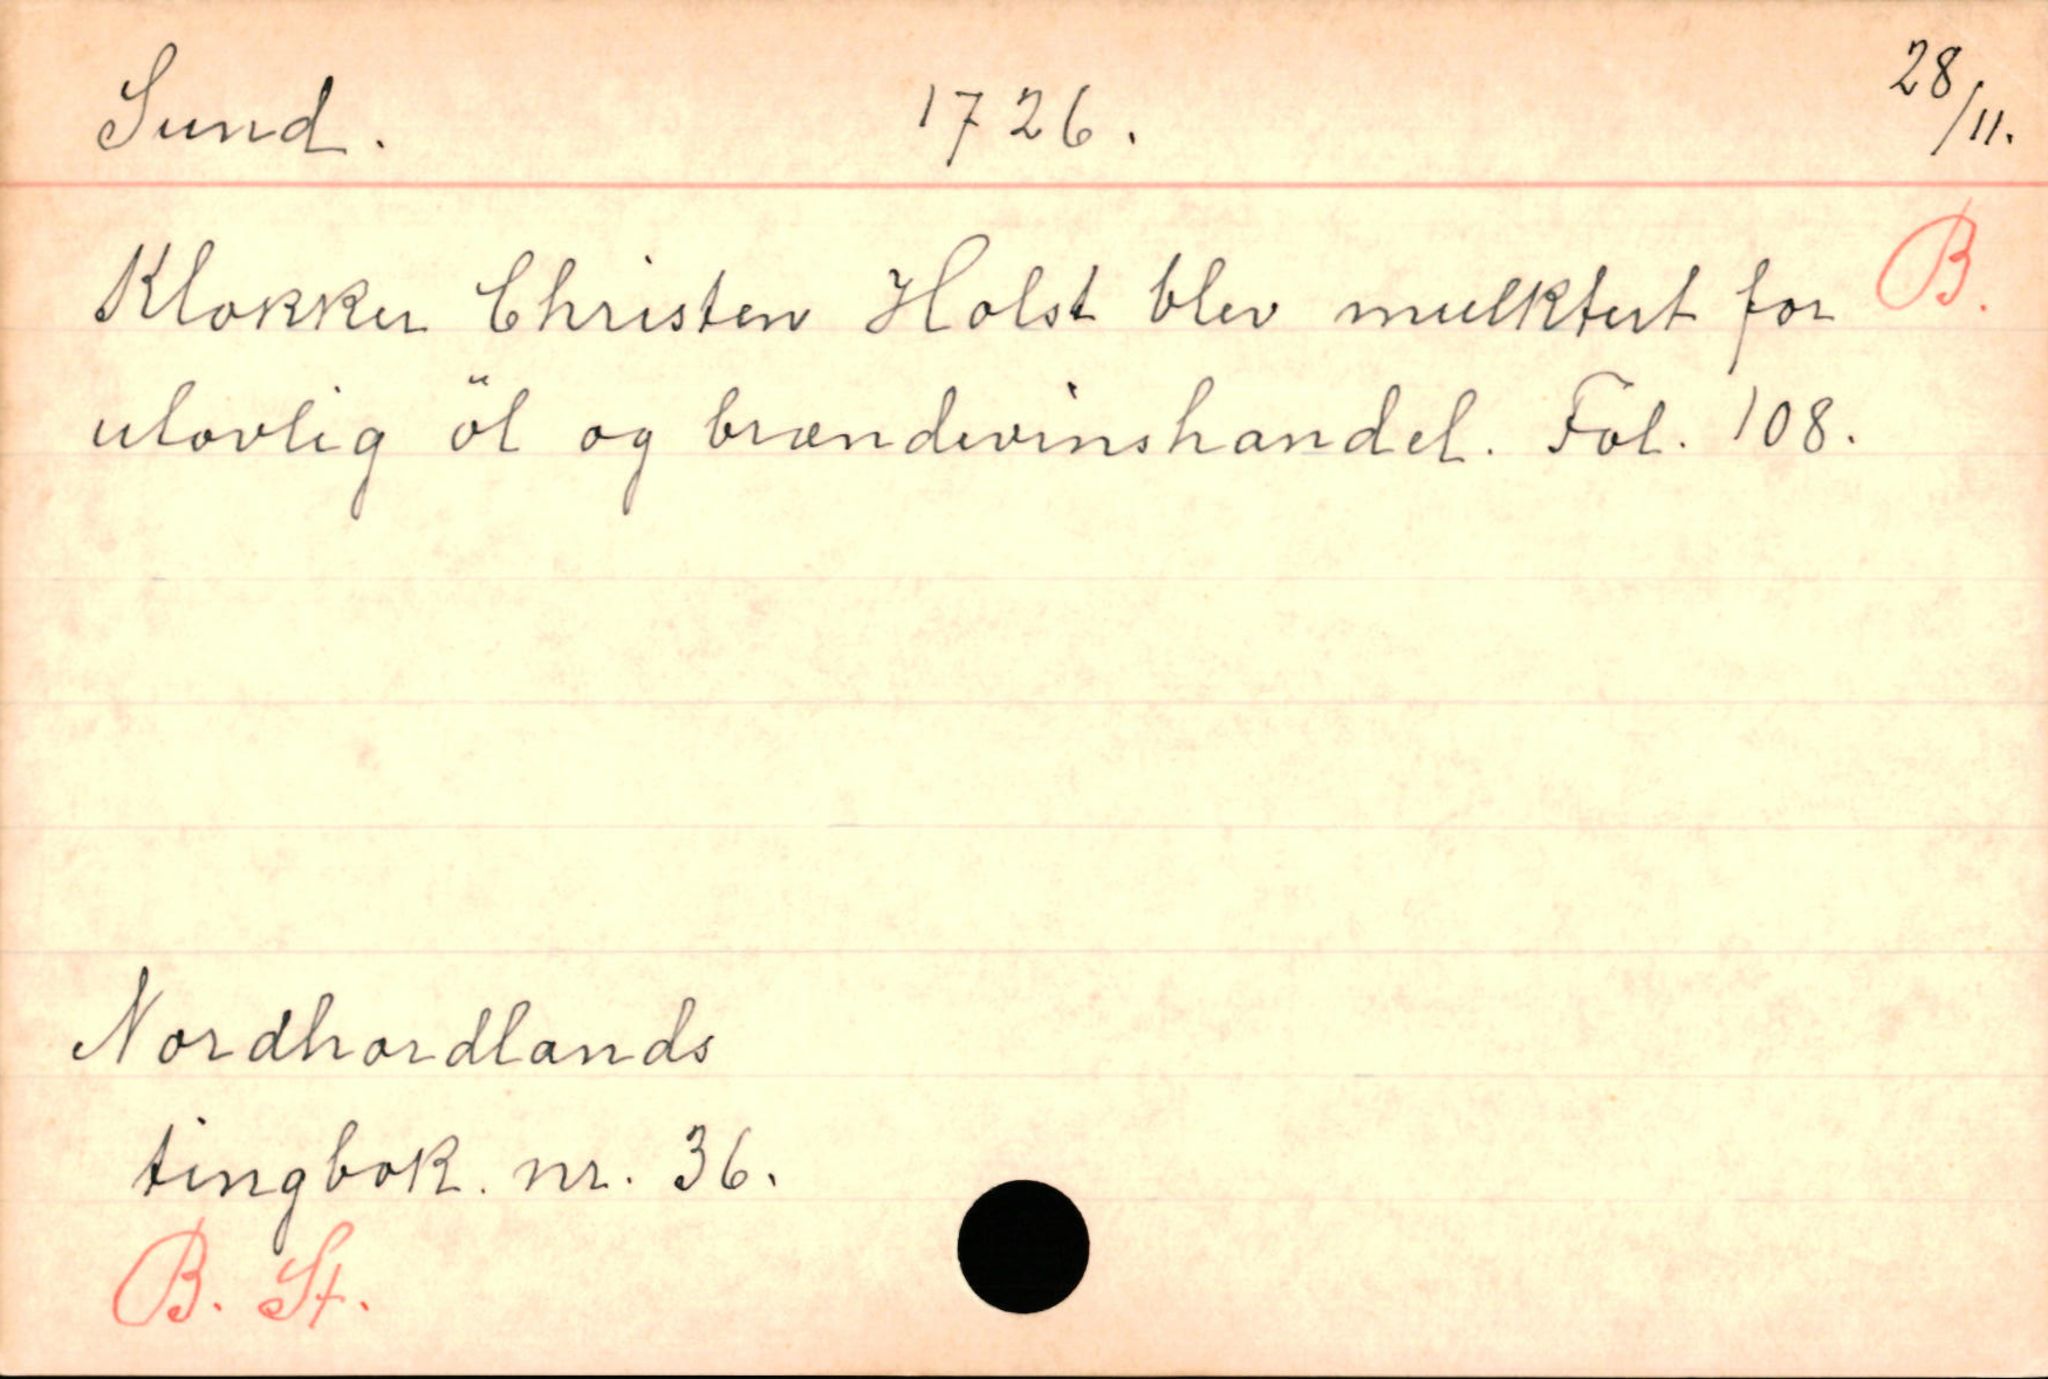 Sund. 1726. 28/11.
Klokker Christen Holst blev mulktert for B.
ulovlig öl og brændevinshandel. Fol. 108.
Nordhordlands
tingbok. nr. 36.
B. St.